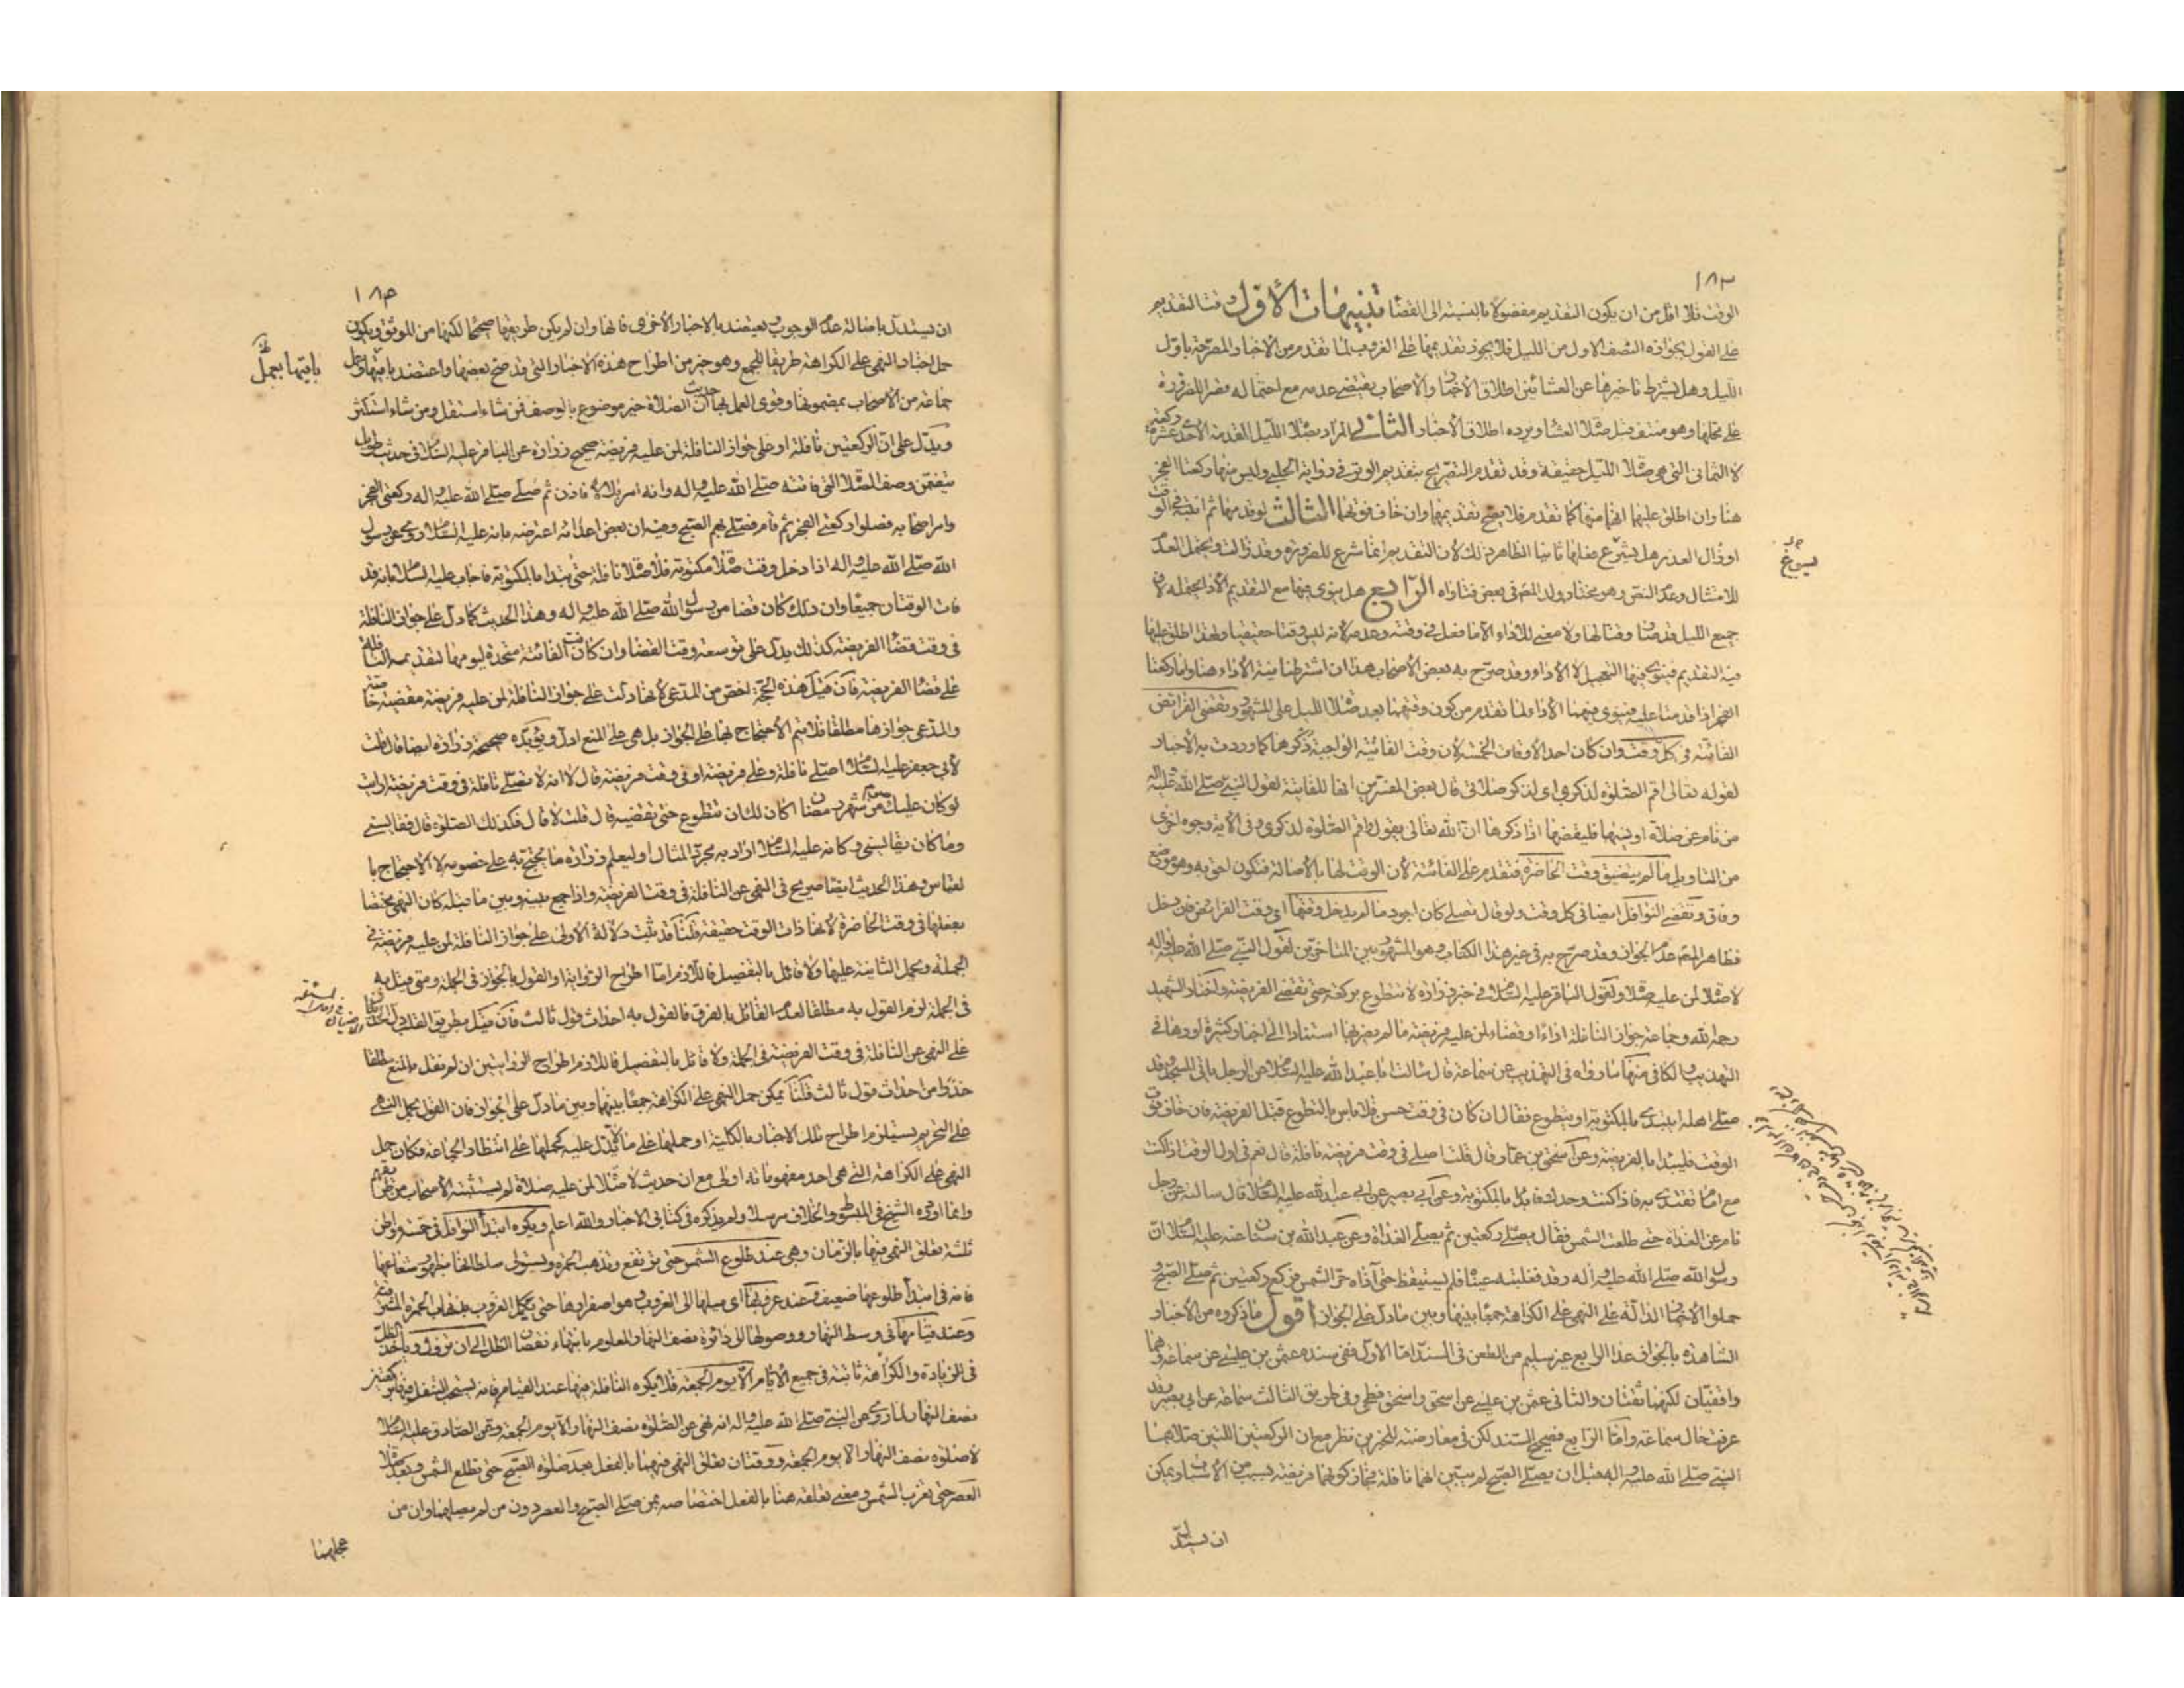 ١٨٣
الوقت فلا اقل من ان يكون التقديم مفضولا بالنسبة الى القضا تنبيهات الاول وقت التقديم
على القول بجوازه النصف الاول من الليل فلا يجوز تقديمها على الغروب لما تقدم من الاخبار المصرحة باول
الليل وهل يشترط تاخيرها عن العشائين اطلاق الاخبار والاصحاب يقتضى عدمه مع احتماله قصرا للضرورة
على محلها وهو منتف قبل صلاة العشا ويرده اطلاق الاخبار الثانى المراد بصلاة الليل المقدمة الاحدى عشرة ركعة
لا الثمانى التى هى صلاة الليل حقيقة وقد تقدم التصريح بتقديم الوتر فى رواية الحلبى وليس منها ركعتا الفجر
هنا وان اطلق عليهما انهما منها كما تقدم فلا يصح تقديمها وان خاف فوتها الثالث لو قدمها ثم انتبه فى الوقت
او زال العذر هل يشرع فعلها ثانيا الظاهر ذلك لان التقديم انما شرع للضرورة وقد زالت ويحتمل العدم
للامتثال وعدم النص وهو مختار ولد المص فى بعض فتاواه الرابع هل ينوى فيها مع التقديم الاداء يحتمله لان
جميع الليل قد صار وقتا لها ولا معنى للاداء الا ما فعل فى وقته وعدمه لانه ليس وقتا حقيقيا ولهذا اطلق عليها
فيه التقديم فينوى فيها التعجيل لا الاداء وقد صرح به بعض الاصحاب هذا ان اشترطنا نية الاداء هنا واما ركعتا
الفجر اذا قدمتا عليه فينوى فيهما الاداء لما تقدم من كون وقتهما بعد صلاة الليل على المشهور وتقضى الفرائض
الفائتة فى كل وقت وان كان احد الاوقات الخمسة لان وقت الفائتة الواجبة ذكرها كما وردت به الاخبار
لقوله تعالى اقم الصلوة لذكرى اى لذكر صلاتى قال بعض المفسرين انها للفائتة لقول النبى صلى الله عليه واله
من نام عن صلاة او نسيها فليقضها اذا ذكرها ان الله تعالى يقول واقم الصلوة لذكرى وفى الاية وجوه اخرى
من التاويل ما لم يتضيق وقت الحاضرة فتقدم على الفائتة لان الوقت لها بالاصالة فتكون احق به وهو موضع
وفاق وتقضى النوافل ايضا فى كل وقت ولو قال تصلى كان اجود ما لم يدخل وقتها اى وقت الفرائض فان دخل
فظاهر المص عدم الجواز وقد صرح به فى غير هذا الكتاب وهو المشهور بين المتاخرين لقول النبى صلى الله عليه واله
لا صلاة لمن عليه صلاة ولقول الباقر عليه السلام فى خبر زرارة لا تتطوع بركعة حتى تقضى الفريضة واختار الشهيد
رحمه الله وجماعة جواز النافلة اداءا وقضاء لمن عليه فريضة ما لم يضر بها استنادا الى اخبار كثيرة اوردها فى
التهذيب والكافى منها ما رواه فى التهذيب عن سماعة قال سالت ابا عبد الله عليه السلام عن الرجل ياتى المسجد وقد
صلى اهله ايبتدئ بالمكتوبة او يتطوع فقال ان كان فى وقت حسن فلا باس بالتطوع قبل الفريضة فان خاف فوت
الوقت فليبدا بالفريضة وعن اسحق بن عمار قال قلت اصلى فى وقت فريضة نافلة قال نعم فى اول الوقت اذا كنت
مع امام تقتدى به فاذا كنت وحدك فابدا بالمكتوبة وعن ابى بصير عن ابى عبد الله عليه السلام قال سالته عن رجل
نام عن الغداة حتى طلعت الشمس فقال يصلى ركعتين ثم يصلى الغداة وعن عبد الله بن سنان عنه عليه السلام ان
رسول الله صلى الله عليه واله رقد فغلبته عيناه فلم يستيقظ حتى آذاه حر الشمس فركع ركعتين ثم صلى الصبح و
حملوا الاخبار الدالة على النهى على الكراهة جمعا بينها وبين ما دل على الجواز اقول ما ذكروه من الاخبار
الشاهدة بالجواز عدا الرابع غير سليم من الطعن فى السند اما الاول ففى سنده عثمن بن عيسى عن سماعة وهما
واقفيان لكنهما ثقتان والثانى عثمن بن عيسى عن اسحق واسحق فطحى وفى طريق الثالث سماعة عن ابى بصير وقد
عرفت حال سماعة واما الرابع فصحيح السند لكن فى معارضته للخبرين نظر مع ان الركعتين اللتين صلاهما
النبى صلى الله عليه واله قبل ان يصلى الصبح لم يتبين انهما نافلة فجاز كونهما فريضة بسبب من الاسباب ويمكن
ان يستدل
يسوغ
١٨٤
ان يستدل باصالة عدم الوجوب ويعتضد بالاخبار الاخرى فانها وان لم يكن طريقها صحيحا لكنها من الموثق ويكون
حمل اخبار النهى على الكراهة طريقا للجمع وهو خير من اطراح هذه الاخبار التى قد صح بعضها واعتضد باقيها وعمل
جماعة من الاصحاب بمضمونها وقوى العمل بها حديث ان الصلاة خير موضوع بالوصف فمن شاء استقل ومن شاء استكثر
ويدل على ان الركعتين نافلة او على جواز النافلة لمن عليه فريضة صحيح زرارة عن الباقر عليه السلام فى حديث طويل
يتضمن وصف الصلاة التى فاتته صلى الله عليه واله وانه امر بلالا فاذن ثم صلى صلى الله عليه واله ركعتى الفجر
وامر اصحابه فصلوا ركعتى الفجر ثم قام فصلى بهم الصبح وفيه ان بعض اعدائه اعترضه بانه عليه السلام روى عن رسول
الله صلى الله عليه واله اذا دخل وقت صلاة مكتوبة فلا صلاة نافلة حتى يبدا بالمكتوبة فاجاب عليه السلام بانه قد
فات الوقتان جميعا وان ذلك كان قضا من رسول الله صلى الله عليه واله وهذا الحديث كما دل على جواز النافلة
فى وقت قضا الفريضة كذلك يدل على توسعة وقت القضا وان كانت الفائتة متحدة ليومها لتقديمه النافلة
على قضا الفريضة فان قيل هذه الحجة اخص من المدعى لانها دلت على جواز النافلة لمن عليه فريضة مقضية خاصة
والمدعى جوازها مطلقا فلا يتم الاحتجاج بها على الجواز بل هى على المنع ادل ويؤيده صحيحة زرارة ايضا قال قلت
لابى جعفر عليه السلام اصلى نافلة وعلى فريضة او فى وقت فريضة قال لا انه لا تصلى نافلة فى وقت فريضة ارايت
لو كان عليك صوم من شهر رمضان اكان لك ان تتطوع حتى تقضيه قال قلت لا قال فكذلك الصلوة قال فقايسنى
وما كان يقايسنى وكانه عليه السلام اراد به مجرد المثال او ليعلم زرارة ما يحتج به على خصومه لا الاحتجاج بالقياس
وهذا الحديث ايضا صريح فى النهى عن النافلة فى وقت الفريضة واذا جمع بينه وبين ما قبله كان النهى مختصا
بفعلها فى وقت الحاضرة لانها ذات الوقت حقيقة قلنا قد ثبت دلالة الاولى على جواز النافلة لمن عليه فريضة فى
الجملة ويحمل الثانية عليها ولا قائل بالتفصيل فاللازم اما اطراح الرواية او القول بالجواز فى الجملة ومتى قيل به
فى الجملة لزم القول به مطلقا لعدم القائل بالفرق فالقول به احداث قول ثالث فان قيل بطريق القلب دل الحديثان
على النهى عن النافلة فى وقت الفريضة فى الجملة ولا قائل بالتفصيل فاللازم اطراح الروايتين ان لم نقل بالمنع مطلقا
حذرا من احداث قول ثالث قلنا يمكن حمل النهى على الكراهة جمعا بينهما وبين ما دل على الجواز فان القول بحمل النهى
على التحريم يستلزم اطراح تلك الاخبار بالكلية او حملها على ما لا تدل عليه كحملها على انتظار الجماعة فكان حمل
النهى على الكراهة التى هى احد مفهوماته اولى مع ان حديث لا صلاة لمن عليه صلاة لم يستثبته الاصحاب من طرقهم
وانما اورده الشيخ فى المبسوط والخلاف مرسلا ولم يذكره فى كتابى الاخبار والله اعلم ويكره ابتداء النوافل فى خمسة مواطن
ثلثة تعلق النهى فيها بالزمان وهى عند طلوع الشمس حتى ترتفع وتذهب الحمرة ويستولى سلطانها بظهور شعاعها
فانه فى ابتداء طلوعها ضعيف وعند غروبها اى ميلها الى الغروب وهو اصفرارها حتى يكمل الغروب بذهاب الحمرة المشرقية
وعند قيامها فى وسط النهار ووصولها الى دائرة نصف النهار المعلوم بانتهاء نقصان الظل الى ان تزول وياخذ الظل
فى الزيادة والكراهة ثابتة فى جميع الايام الا يوم الجمعة فلا يكره النافلة فيها عند القيام فانه يستحب التنفل فيها بركعتين
نصف النهار لما روى عن النبى صلى الله عليه واله انه نهى عن الصلوة نصف النهار الا يوم الجمعة وعن الصادق عليه السلام
لا صلوة نصف النهار الا يوم الجمعة ووقتان تعلق النهى فيهما بالفعل بعد صلوة الصبح حتى تطلع الشمس وبعد صلاة
العصر حتى تغرب الشمس ومعنى تعلقه هنا بالفعل اختصاصه بمن صلى الصبح والعصر دون من لم يصلهما وان من
عجلهما
باقيها بعمل